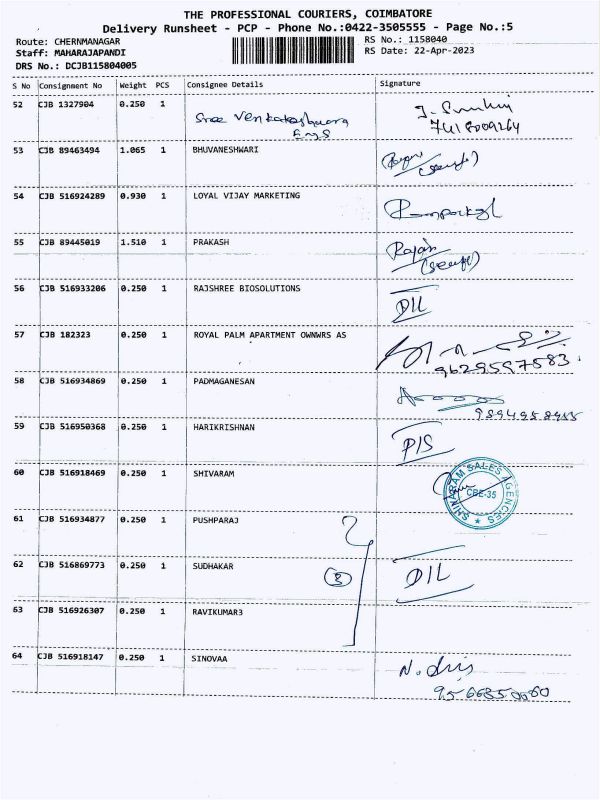 THE PROFESSIONAL COURIERS, COIMBATORE
Delivery Runsheet - PCP - Phone No.:0422-3505555 - Page No.:5
Route: CHERNMANAGAR RS No.: 1158040
Staff: MAHARAJAPANDI RS Date: 22-Apr-2023
DRS No.: DCJB115804005
S No Consignment No Weight PCS Consignee Details Signature
52 CJB 1327904 0.250 1 Sree Venkateshwara
Engs
7418009264
53 CJB 89463494 1.065 1 BHUVANESHWARI
54 CJB 516924289 0.930 1 LOYAL VIJAY MARKETING
55 CJB 89445019 1.510 1 PRAKASH Rajan
56 CJB 516933206 0.250 1 RAJSHREE BIOSOLUTIONS DIL
57 CJB 182323 0.250 1 ROYAL PALM APARTMENT OWNWRS AS
9629597583
58 CJB 516934869 0.250 1 PADMAGANESAN
9894958955
59 CJB 516950368 0.250 1 HARIKRISHNAN PIS
60 CJB 516918469 0.250 1 SHIVARAM
SHIVARAM SALES AGENCIES
CBE-35
61 CJB 516934877 0.250 1 PUSHPARAJ
62 CJB 516869773 0.250 1 SUDHAKAR 3 DIL
63 CJB 516926307 0.250 1 RAVIKUMAR3
64 CJB 516918147 0.250 1 SINOVAA